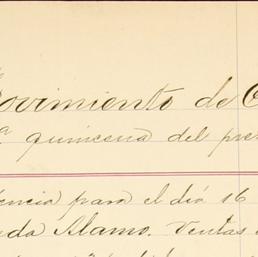 ovimiento de C
ª quincena del pre
encia para el día 16
da Alamo. Ventas